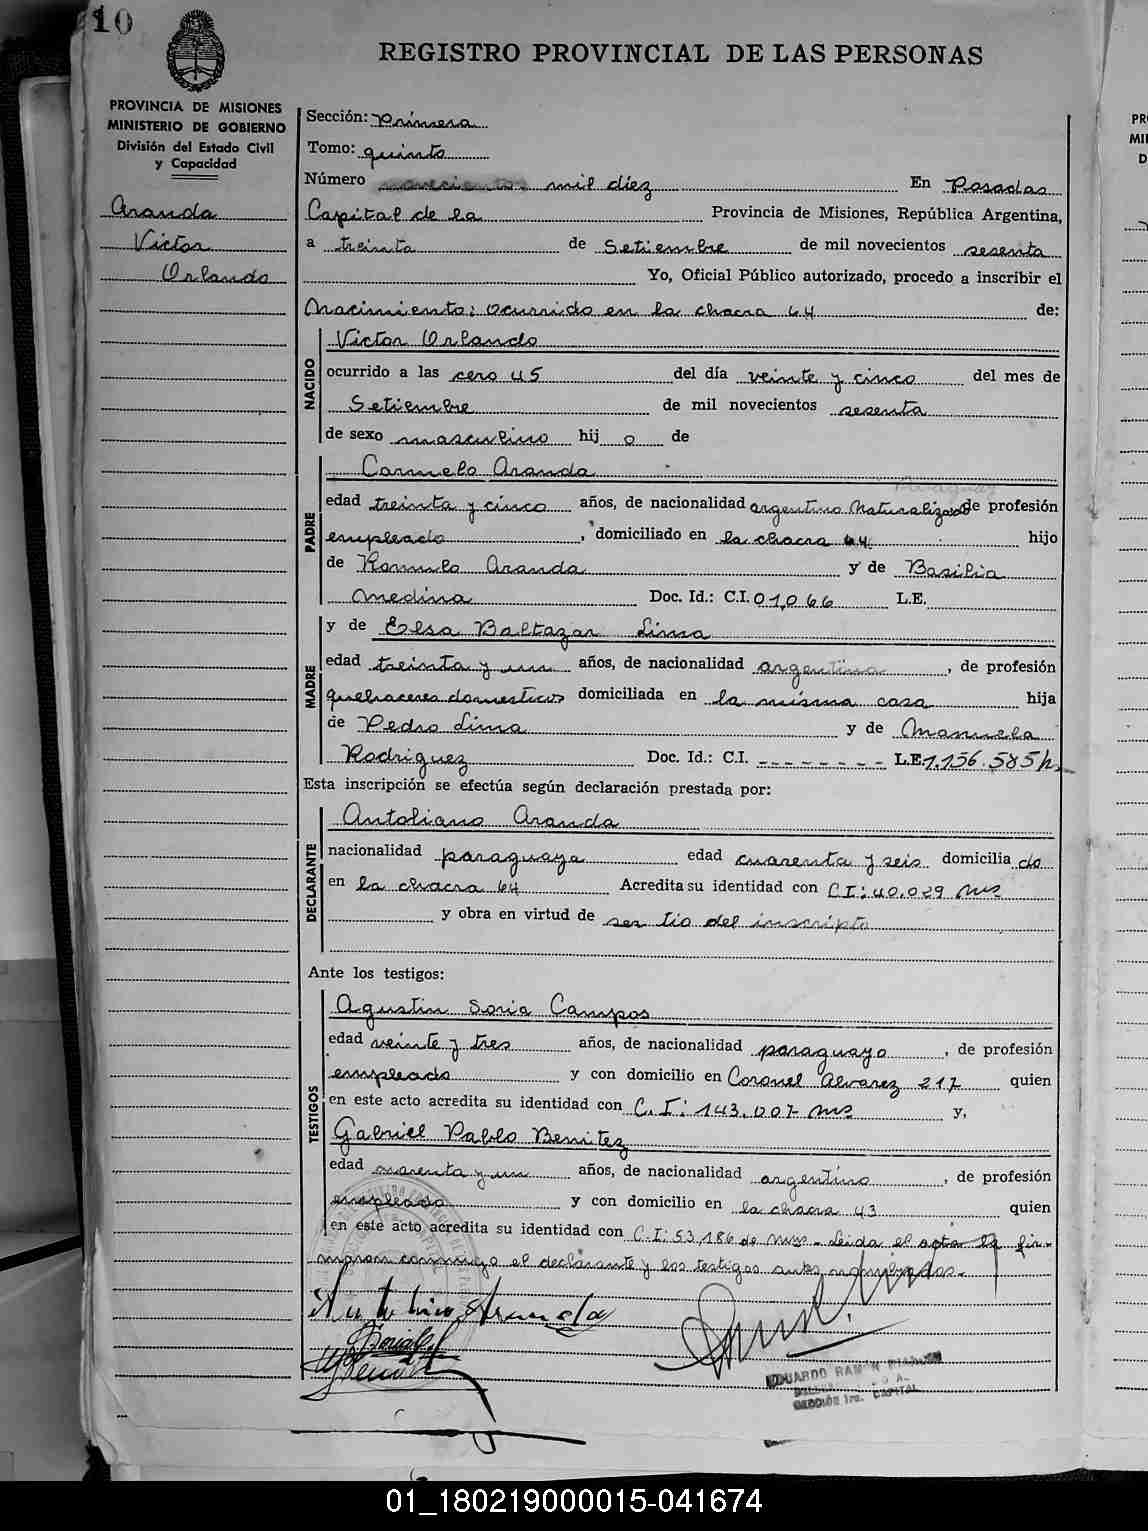 10
REGISTRO PROVINCIAL DE LAS PERSONAS
PROVINCIA DE MISIONES
MINISTERIO DE GOBIERNO
División del Estado Civil
y Capacidad
Aranda
Victor
Orlando
Sección: Primera
Tomo: quinto
Número mil diez En Posadas
Capital de la Provincia de Misiones, República Argentina,
a treinta de Setiembre de mil novecientos sesenta
Yo, Oficial Público autorizado, procedo a inscribir el
Nacimiento: ocurrido en la chacra 64 de:
NACIDO
Victor Orlando
ocurrido a las cero 45 del día veinte y cinco del mes de
Setiembre de mil novecientos sesenta
de sexo masculino hij o de
PADRE
Carmelo Aranda
edad treinta y cinco años, de nacionalidad argentino Naturalizado de profesión
empleado, domiciliado en la chacra 64 hijo
de Romulo Aranda y de Basilia
Medina Doc. Id.: C.I. 01,066 L.E.
MADRE
y de Elsa Baltazar Lima
edad treinta y un años, de nacionalidad argentina, de profesión
quehaceres domesticos domiciliada en la misma casa hija
de Pedro Lima y de Manuela
Rodriguez Doc. Id.: C.I. - - - - - - - - L.E. 1.156.585
Esta inscripción se efectúa según declaración prestada por:
DECLARANTE
Antoliano Aranda
nacionalidad paraguaya edad cuarenta y seis domicilia do
en la chacra 64 Acredita su identidad con C I: 40.029 Mns
y obra en virtud de ser tio del inscripto
Ante los testigos:
TESTIGOS
Agustin Soria Campos
edad veinte y tres años, de nacionalidad paraguayo, de profesión
empleado y con domicilio en Coronel Alvarez 217 quien
en este acto acredita su identidad con C. I: 143.007 Mns y,
Gabriel Pablo Benitez
edad cuarenta y un años, de nacionalidad argentino, de profesión
empleado y con domicilio en la chacra 43 quien
en este acto acredita su identidad con C.I: 53,186 de Mns. Leida el acta la fir-
maron conmigo el declarante y los testigos antes nombrados.-
EDUARDO RAMON
SECCIÓN 1ra. CAPITAL
01_180219000015-041674